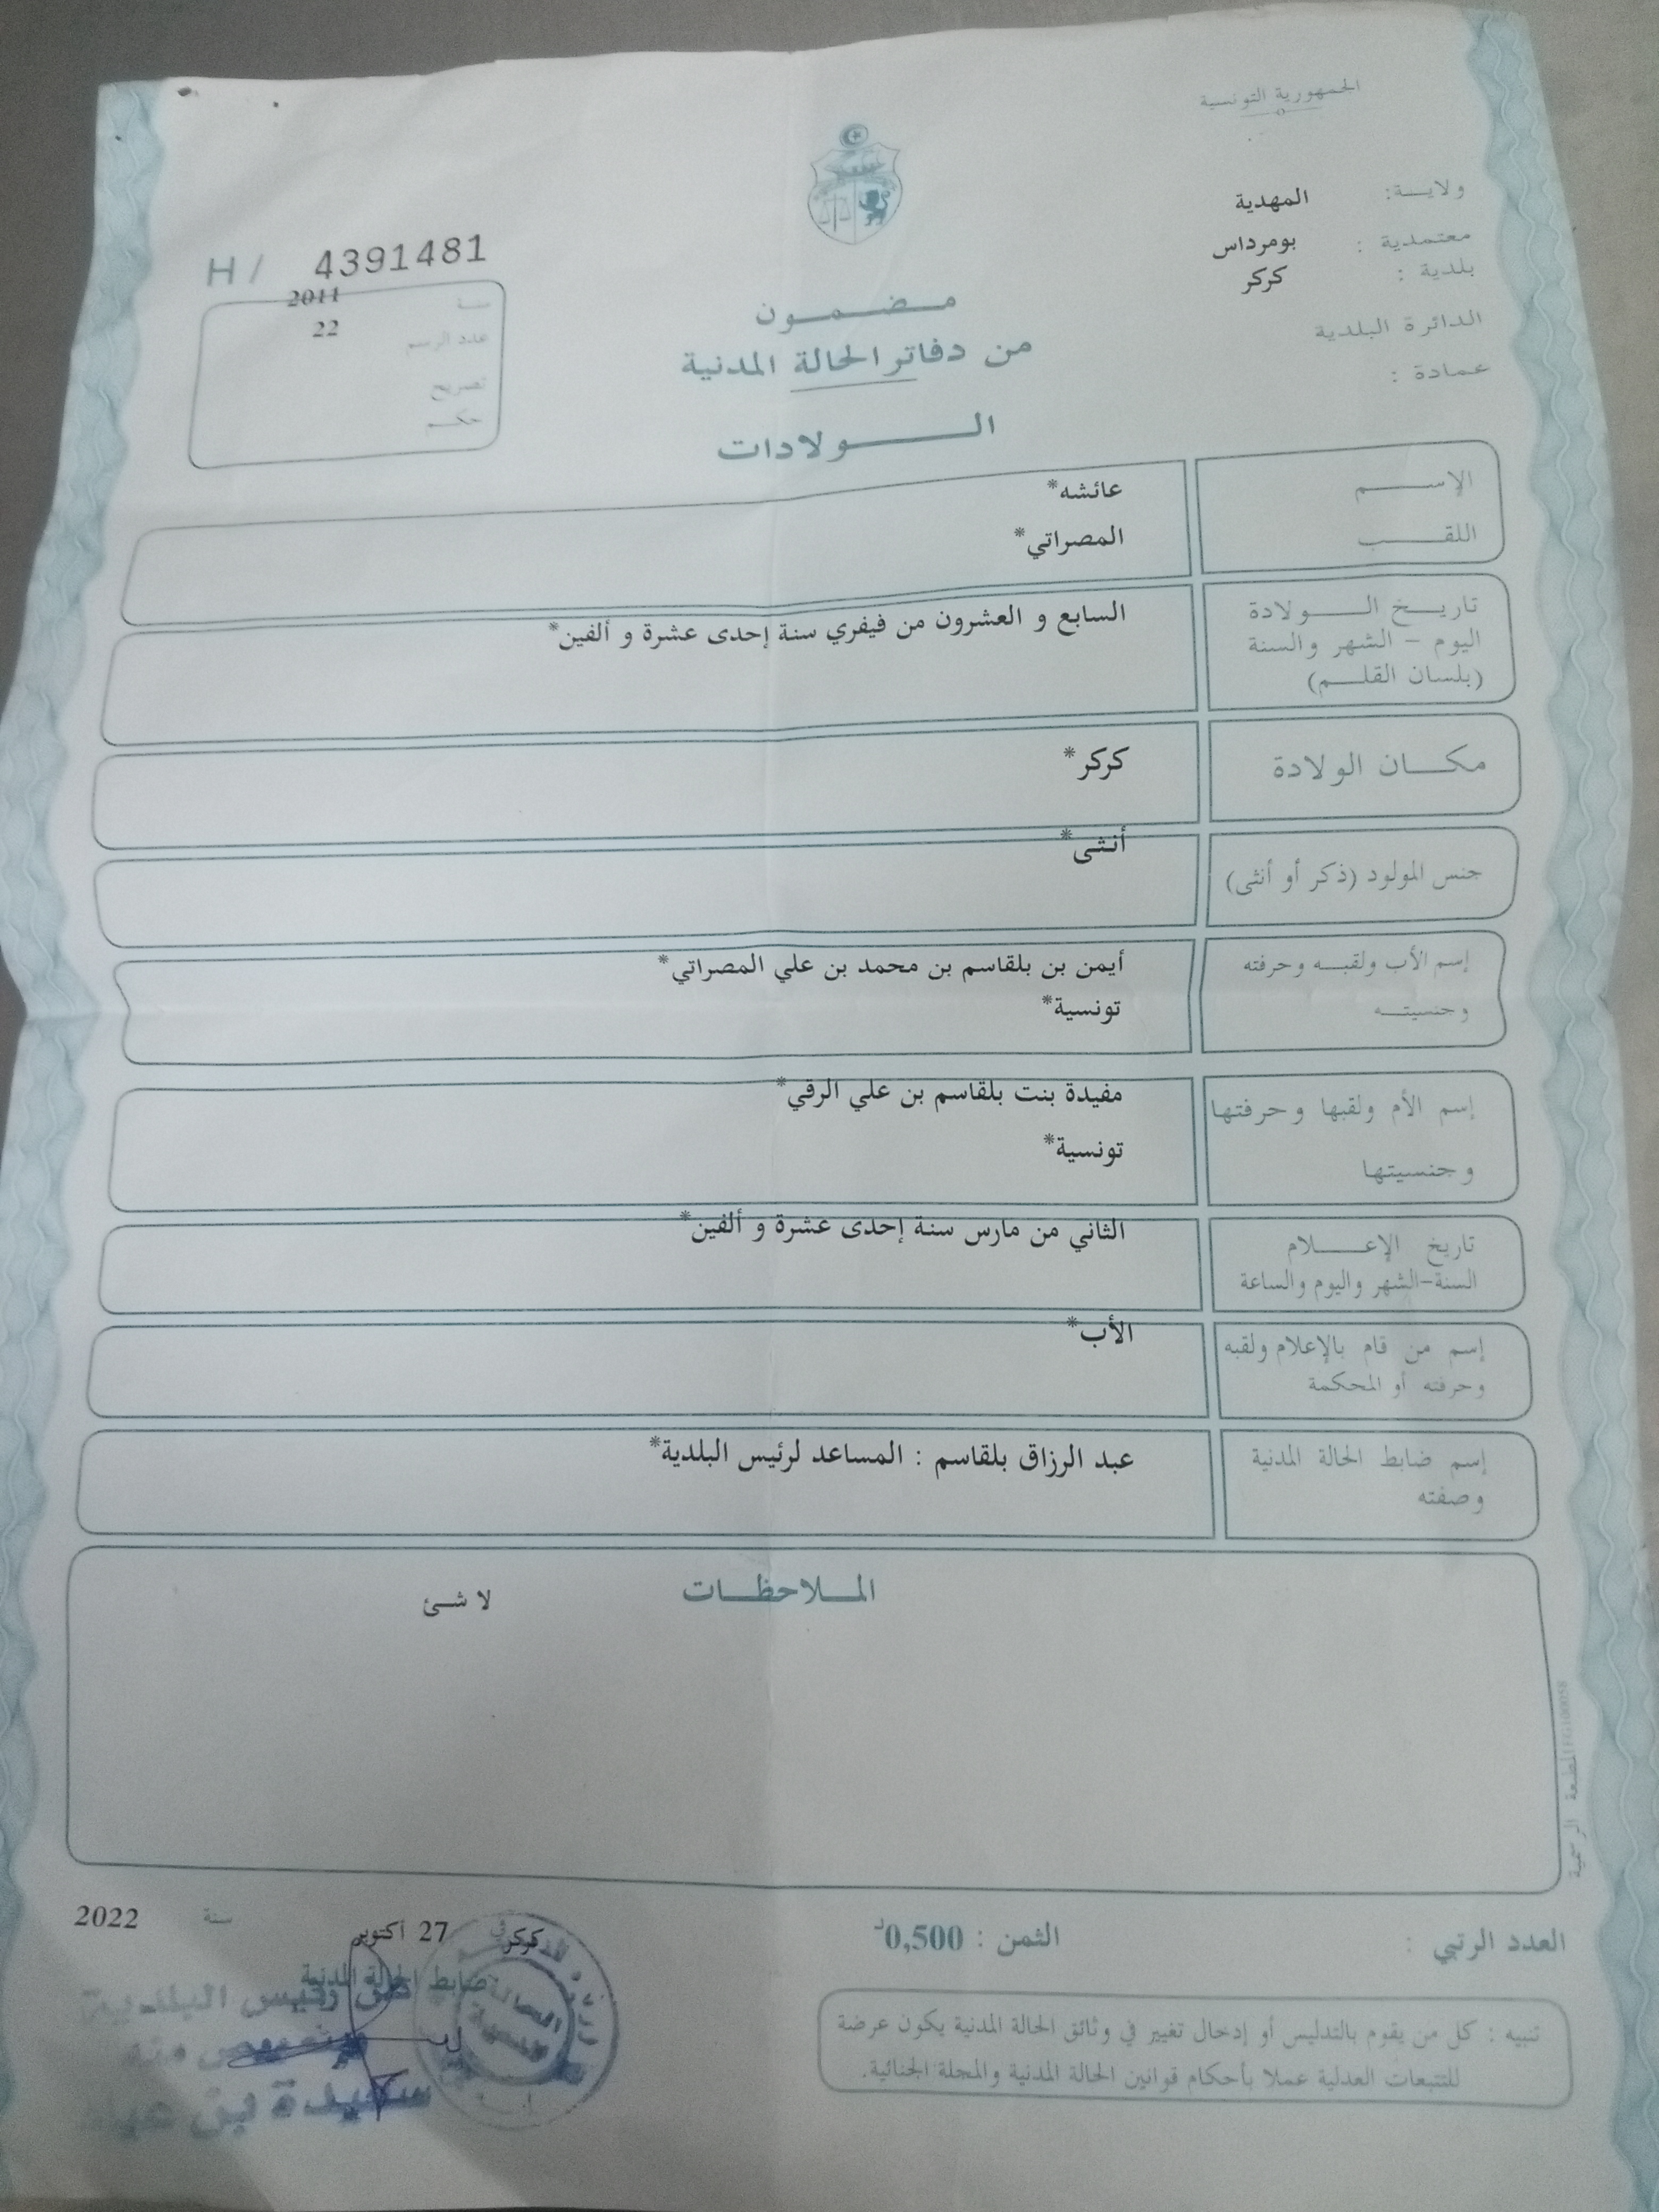 الجمهورية التونسية
ولايـــة: المهدية
معتمدية : بومرداس
بلدية : كركر
الدائرة البلدية
عمادة :
H / 4391481
سنة 2011
عدد الرسم 22
تصريح
حكم
مضمون
من دفاتر الحالة المدنية
الولادات
الإسم عائشه*
اللقب المصراتي*
تاريخ الولادة
اليوم - الشهر والسنة
(بلسان القلم)
السابع و العشرون من فيفري سنة إحدى عشرة و ألفين*
مكان الولادة كركر*
جنس المولود (ذكر أو أنثى) أنثى*
إسم الأب ولقبه وحرفته أيمن بن بلقاسم بن محمد بن علي المصراتي*
وجنسيته تونسية*
إسم الأم ولقبها وحرفتها مفيدة بنت بلقاسم بن علي الرقي*
وجنسيتها تونسية*
تاريخ الإعلام الثاني من مارس سنة إحدى عشرة و ألفين*
السنة-الشهر واليوم والساعة
إسم من قام بالإعلام ولقبه الأب*
وحرفته أو المحكمة
إسم ضابط الحالة المدنية عبد الرزاق بلقاسم : المساعد لرئيس البلدية*
وصفته
الملاحظات
لا شئ
المطبعة الرسمية
العدد الرتبي :
الثمن : 0,500د
كركر في 27 أكتوبر سنة 2022
ضابط الحالة المدنية
رئيس البلدية
سعيدة بن
الحالة
المدنية
تنبيه : كل من يقوم بالتدليس أو إدخال تغيير في وثائق الحالة المدنية يكون عرضة
للتتبعات العدلية عملا بأحكام قوانين الحالة المدنية والمجلة الجنائية.